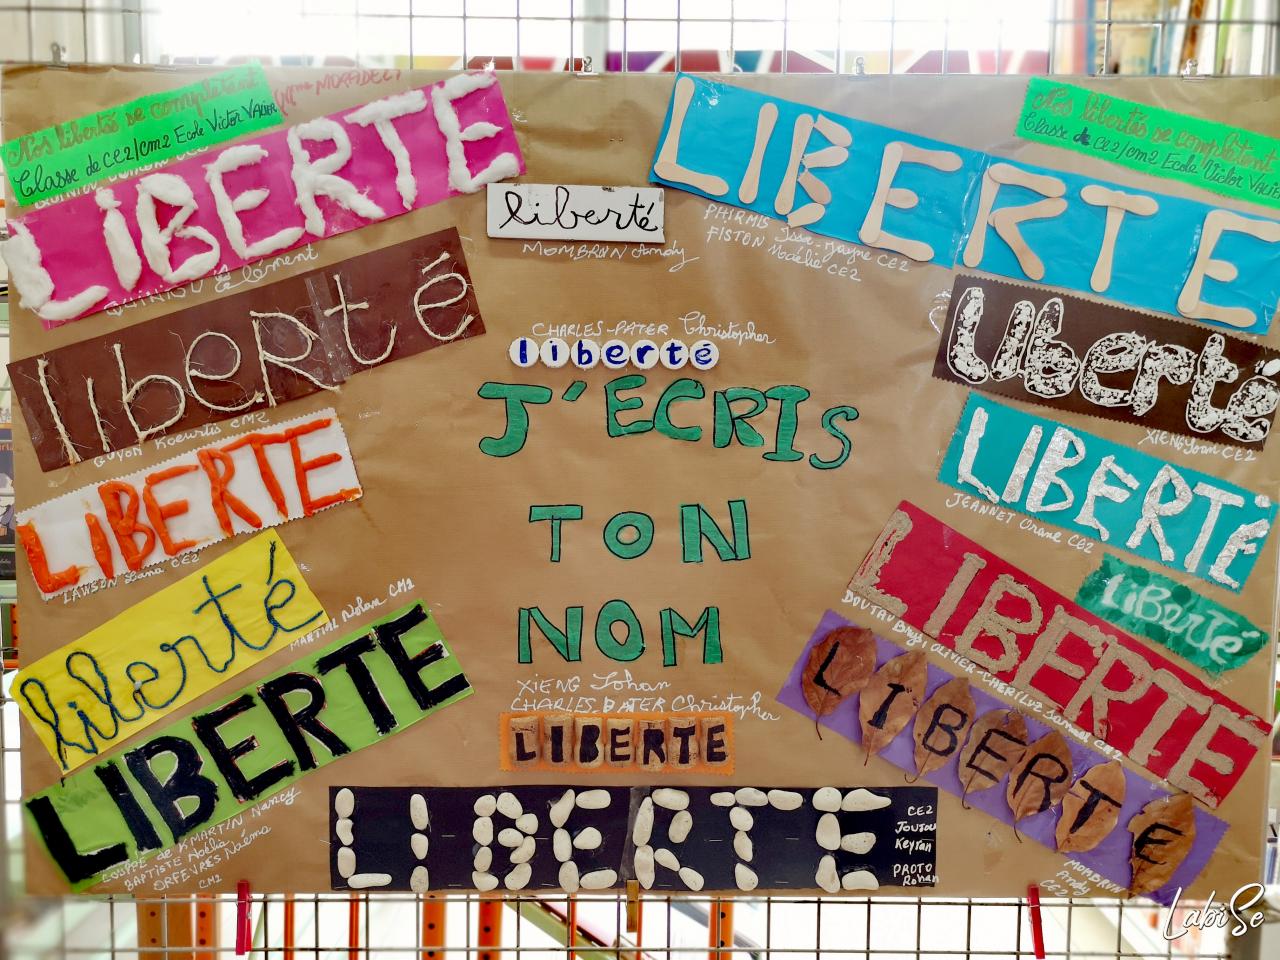 Nos liberté se complètent
Classe de CE2/cm2 Ecole Victor VALIER
LIBERTE
QUINIOU Clément
liberté
GUYON Koeurtis CM2
LIBERTE
LAWSON Lana CE2
liberté
MARTIAL Nolan CM1
LIBERTE
K MARTIN Nancy
BAPTISTE Noélia
ORFEVRES Naéma
CM2
liberté
MOMBRUN Andy
CHARLES-PATER Christopher
liberté
J'ECRIS
TON
NOM
XIENG Johan
CHARLES PATER Christopher
LIBERTE
LIBERTE
CE2
Joujou
Keyran
PROTO
Rohan
LIBERTE
Nos libertés se complètent
Classe de CE2/cm2 Ecole Victor VALIER
PHIRMIS Issa-Jayne CE2
FISTON Maélie CE2
liberté
XIENG Yoan CE2
LIBERTÉ
JEANNET Orane CE2
LiBerTé
LIBERTE
DOUTAU OLIVIER-CHERLUZ Samuel CM2
LIBERTE
MOMBRUN
Andy
CE2
LabiSe